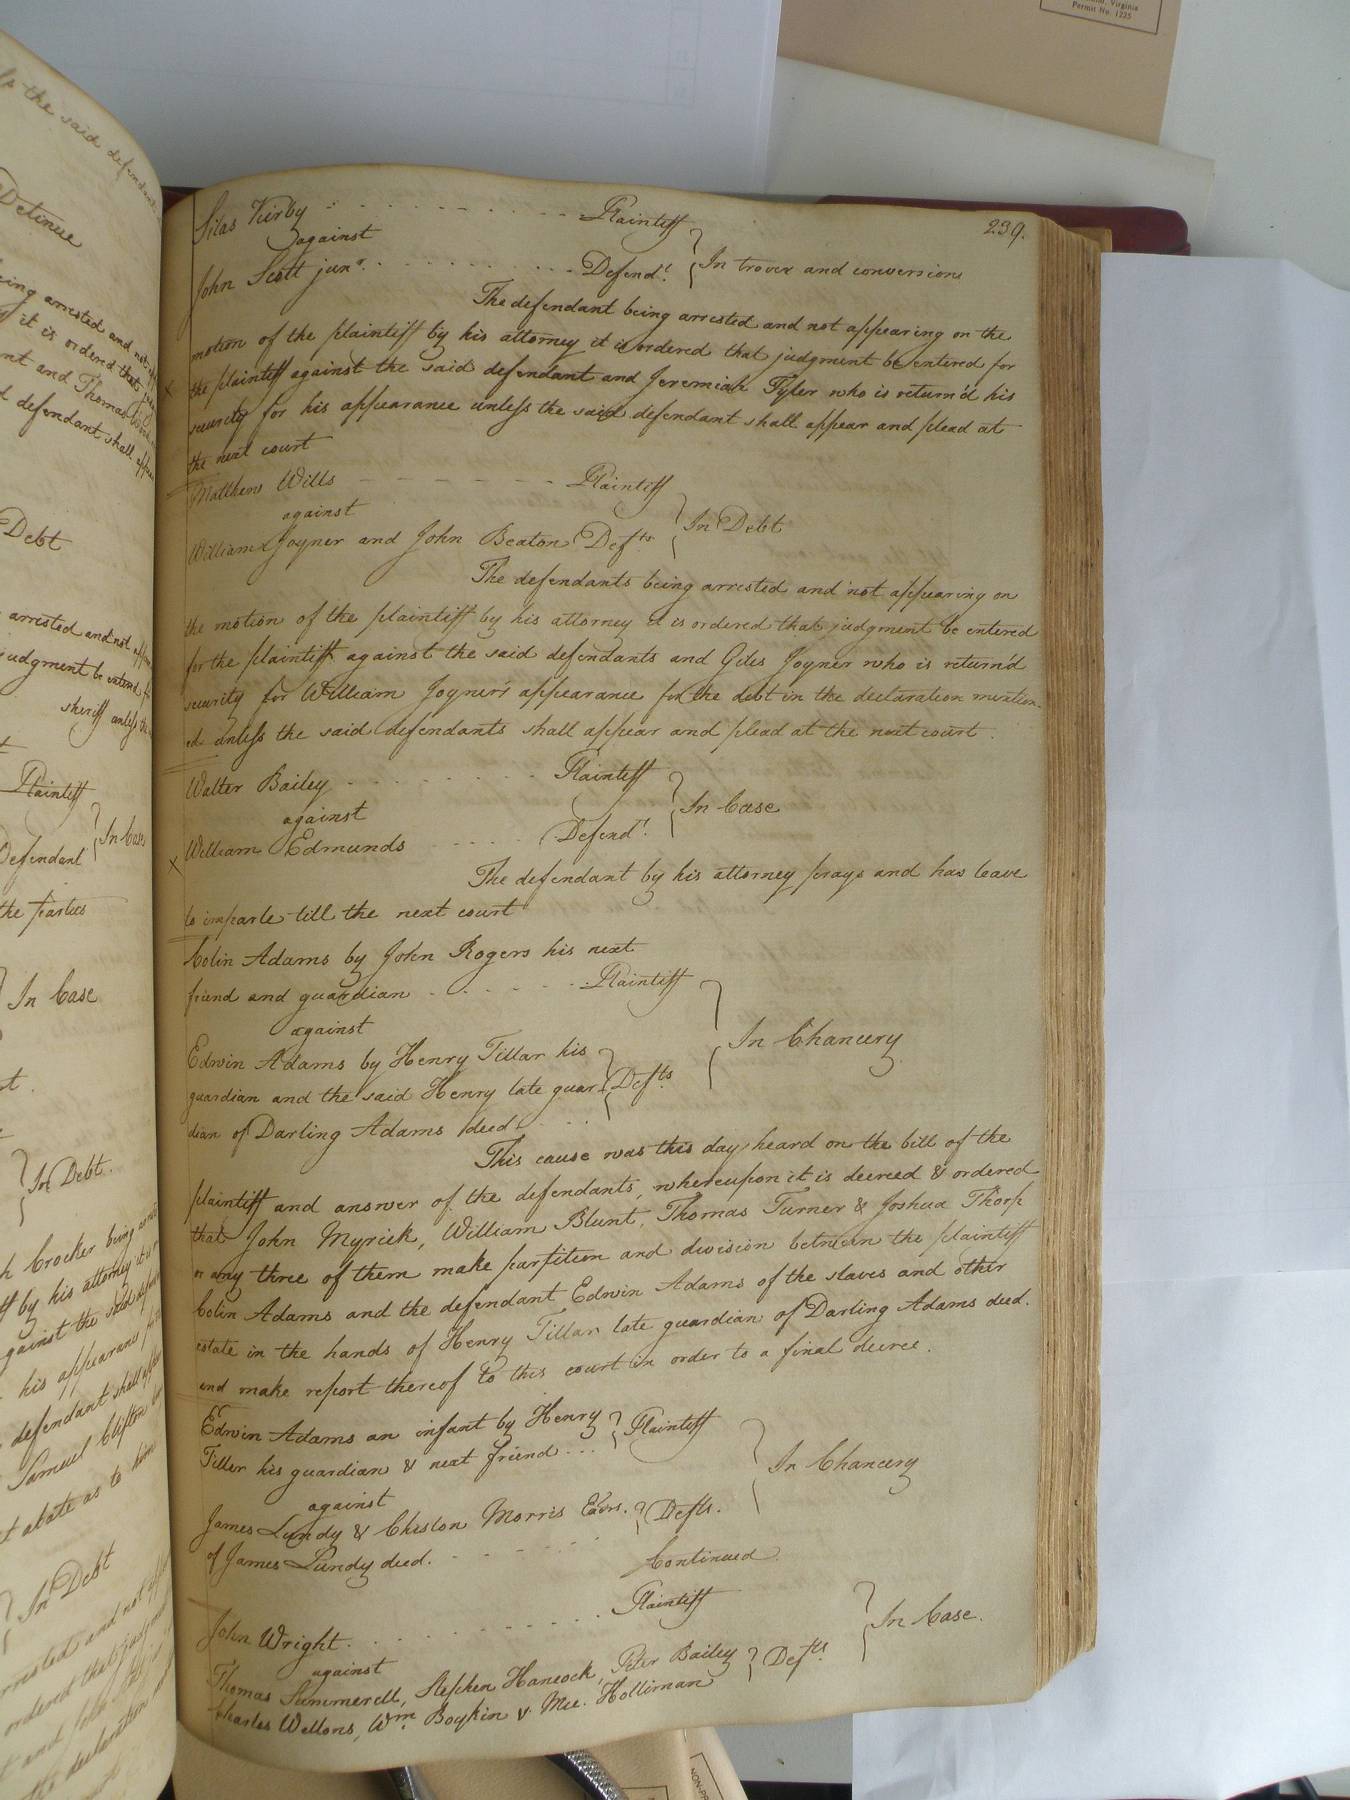 239.
Silas Kirby - - - - - - - - - - Plaintiff
against
John Scott junr. - - - - - - - - - Defendt. In trover and conversion
The defendant being arrested and not appearing on the
motion of the plaintiff by his attorney it is ordered that judgment be entered for
the plaintiff against the said defendant and Jeremiah Tyler who is return'd his
security for his appearance unless the said defendant shall appear and plead at
the next court
Matthew Wills - - - - - - Plaintiff
against
William Joyner and John Beaton Defts. In Debt
The defendants being arrested and not appearing on
the motion of the plaintiff by his attorney it is ordered that judgment be entered
for the plaintiff against the said defendants and Giles Joyner who is return'd
security for William Joyner's appearance for the debt in the declaration mention-
ed unless the said defendants shall appear and plead at the next court.
Walter Bailey - - - - - - - - Plaintiff
against
William Edmunds - - - - Defendt. In Case
The defendant by his attorney prays and has leave
to imparle till the next court
Colin Adams by John Rogers his next
friend and guardian - - - - - - Plaintiff
against
Edwin Adams by Henry Tillar his
guardian and the said Henry late guar- Defts
dian of Darling Adams deed. - - -
In Chancery
This cause was this day heard on the bill of the
plaintiff and answer of the defendants, whereupon it is decreed & ordered
that John Myrick, William Blunt, Thomas Turner & Joshua Thorp
or any three of them make partition and division between the plaintiff
Colin Adams and the defendant Edwin Adams of the slaves and other
estate in the hands of Henry Tillar late guardian of Darling Adams deed.
and make report thereof to this court in order to a final decree.
Edwin Adams an infant by Henry
Tiller his guardian & next friend - - - Plaintiff
against
James Lundy & Chislon Morris Exors. Defts.
of James Lundy deed. - - - - - -
In Chancery
Continued.
John Wright. - - - - - - - - - - Plaintiff
against
Thomas Summerell, Stephen Hancock, Peter Bailey Defts
Charles Wellons, Wm. Boykin & Mic. Holliman
In Case.
the said defendant
Detinue
being arrested and not
it is ordered that
and Thomas
defendant shall
Debt
arrested and not
judgment be entered
sheriff unless the
Plaintiff
Defendant
In Case
the parties
In Case
In Debt.
Crocker being
by his attorney it is
against the said
his appearance
defendant shall
Samuel Clifton
abate as to him
In Debt
arrested and not
ordered that judgment
and John
the declaration
Virginia
Permit No. 1225